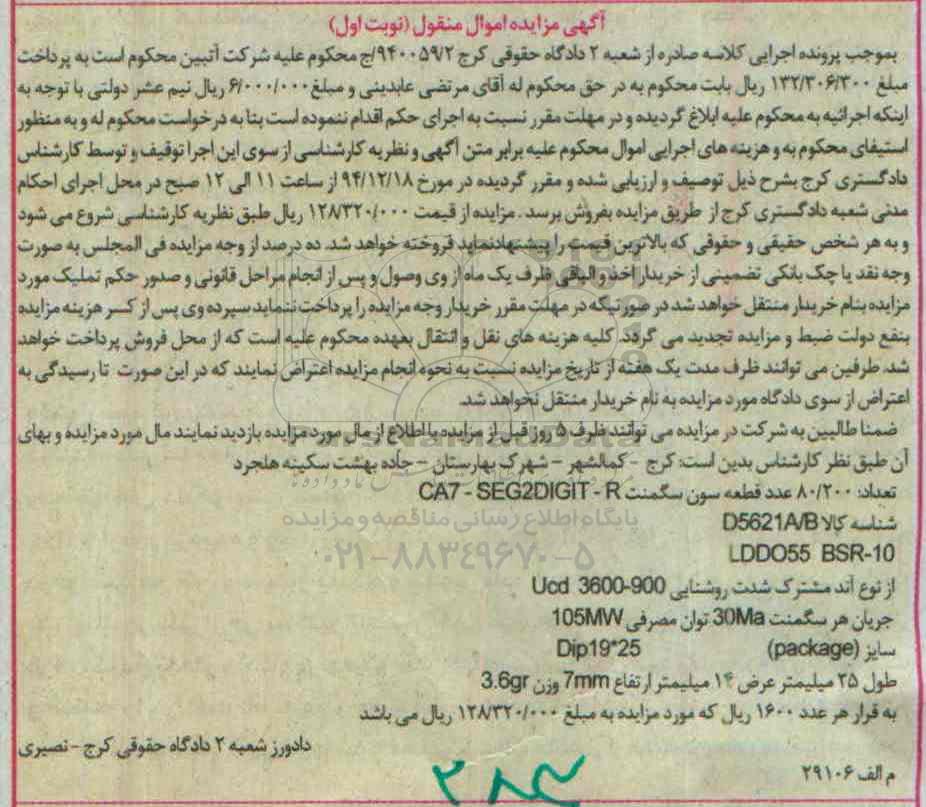 آگهی مزایده اموال منقول (نوبت اول)
بموجب پرونده اجرایی کلاسه صادره از شعبه ۲ دادگاه حقوقی کرج ۹۴۰۰۵۹/۲/ج محکوم علیه شرکت آتیین محکوم است به پرداخت
مبلغ ۱۳۲/۳۰۶/۳۰۰ ریال بابت محکوم به در حق محکوم له آقای مرتضی عابدینی و مبلغ ۶/۰۰۰/۰۰۰ ریال نیم عشر دولتی با توجه به
اینکه اجرائیه به محکوم علیه ابلاغ گردیده و در مهلت مقرر نسبت به اجرای حکم اقدام ننموده است بنا به درخواست محکوم له و به منظور
استیفای محکوم به و هزینه های اجرایی اموال محکوم علیه برابر متن آگهی و نظریه کارشناسی از سوی این اجرا توقیف و توسط کارشناس
دادگستری کرج بشرح ذیل توصیف و ارزیابی شده و مقرر گردیده در مورخ ۹۴/۱۲/۱۸ از ساعت ۱۱ الی ۱۲ صبح در محل اجرای احکام
مدنی شعبه دادگستری کرج از طریق مزایده بفروش برسد. مزایده از قیمت ۱۲۸/۳۲۰/۰۰۰ ریال طبق نظریه کارشناسی شروع می شود
و به هر شخص حقیقی و حقوقی که بالاترین قیمت را پیشنهاد نماید فروخته خواهد شد. ده درصد از وجه مزایده فی المجلس به صورت
وجه نقد یا چک بانکی تضمینی از خریدار اخذ و الباقی ظرف یک ماه از وی وصول و پس از انجام مراحل قانونی و صدور حکم تملیک مورد
مزایده بنام خریدار منتقل خواهد شد در صورتیکه در مهلت مقرر خریدار وجه مزایده را پرداخت ننماید سپرده وی پس از کسر هزینه مزایده
بنفع دولت ضبط و مزایده تجدید می گردد. کلیه هزینه های نقل و انتقال بعهده محکوم علیه است که از محل فروش پرداخت خواهد
شد. طرفین می توانند ظرف مدت یک هفته از تاریخ مزایده نسبت به نحوه انجام مزایده اعتراض نمایند که در این صورت تا رسیدگی به
اعتراض از سوی دادگاه مورد مزایده به نام خریدار منتقل نخواهد شد.
ضمنا طالبین به شرکت در مزایده می توانند ظرف ۵ روز قبل از مزایده با اطلاع از مال مورد مزایده بازدید نمایند مال مورد مزایده و بهای
آن طبق نظر کارشناس بدین است: کرج - کمالشهر - شهرک بهارستان - جاده بهشت سکینه هلجرد
تعداد: ۸۰/۲۰۰ عدد قطعه سون سگمنت CA7 - SEG2DIGIT - R
شناسه کالا D5621A/B
LDDO55 BSR-10
از نوع آند مشترک شدت روشنایی Ucd 3600-900
جریان هر سگمنت 30Ma توان مصرفی 105MW
سایز (package) Dip19*25
طول ۲۵ میلیمتر عرض ۱۴ میلیمتر ارتفاع 7mm وزن 3.6gr
به قرار هر عدد ۱۶۰۰ ریال که مورد مزایده به مبلغ ۱۲۸/۳۲۰/۰۰۰ ریال می باشد
دادورز شعبه ۲ دادگاه حقوقی کرج - نصیری
م الف ۲۹۱۰۶
پایگاه اطلاع رسانی مناقصه و مزایده
۰۲۱-۸۸۳۴۹۶۷۰-۵